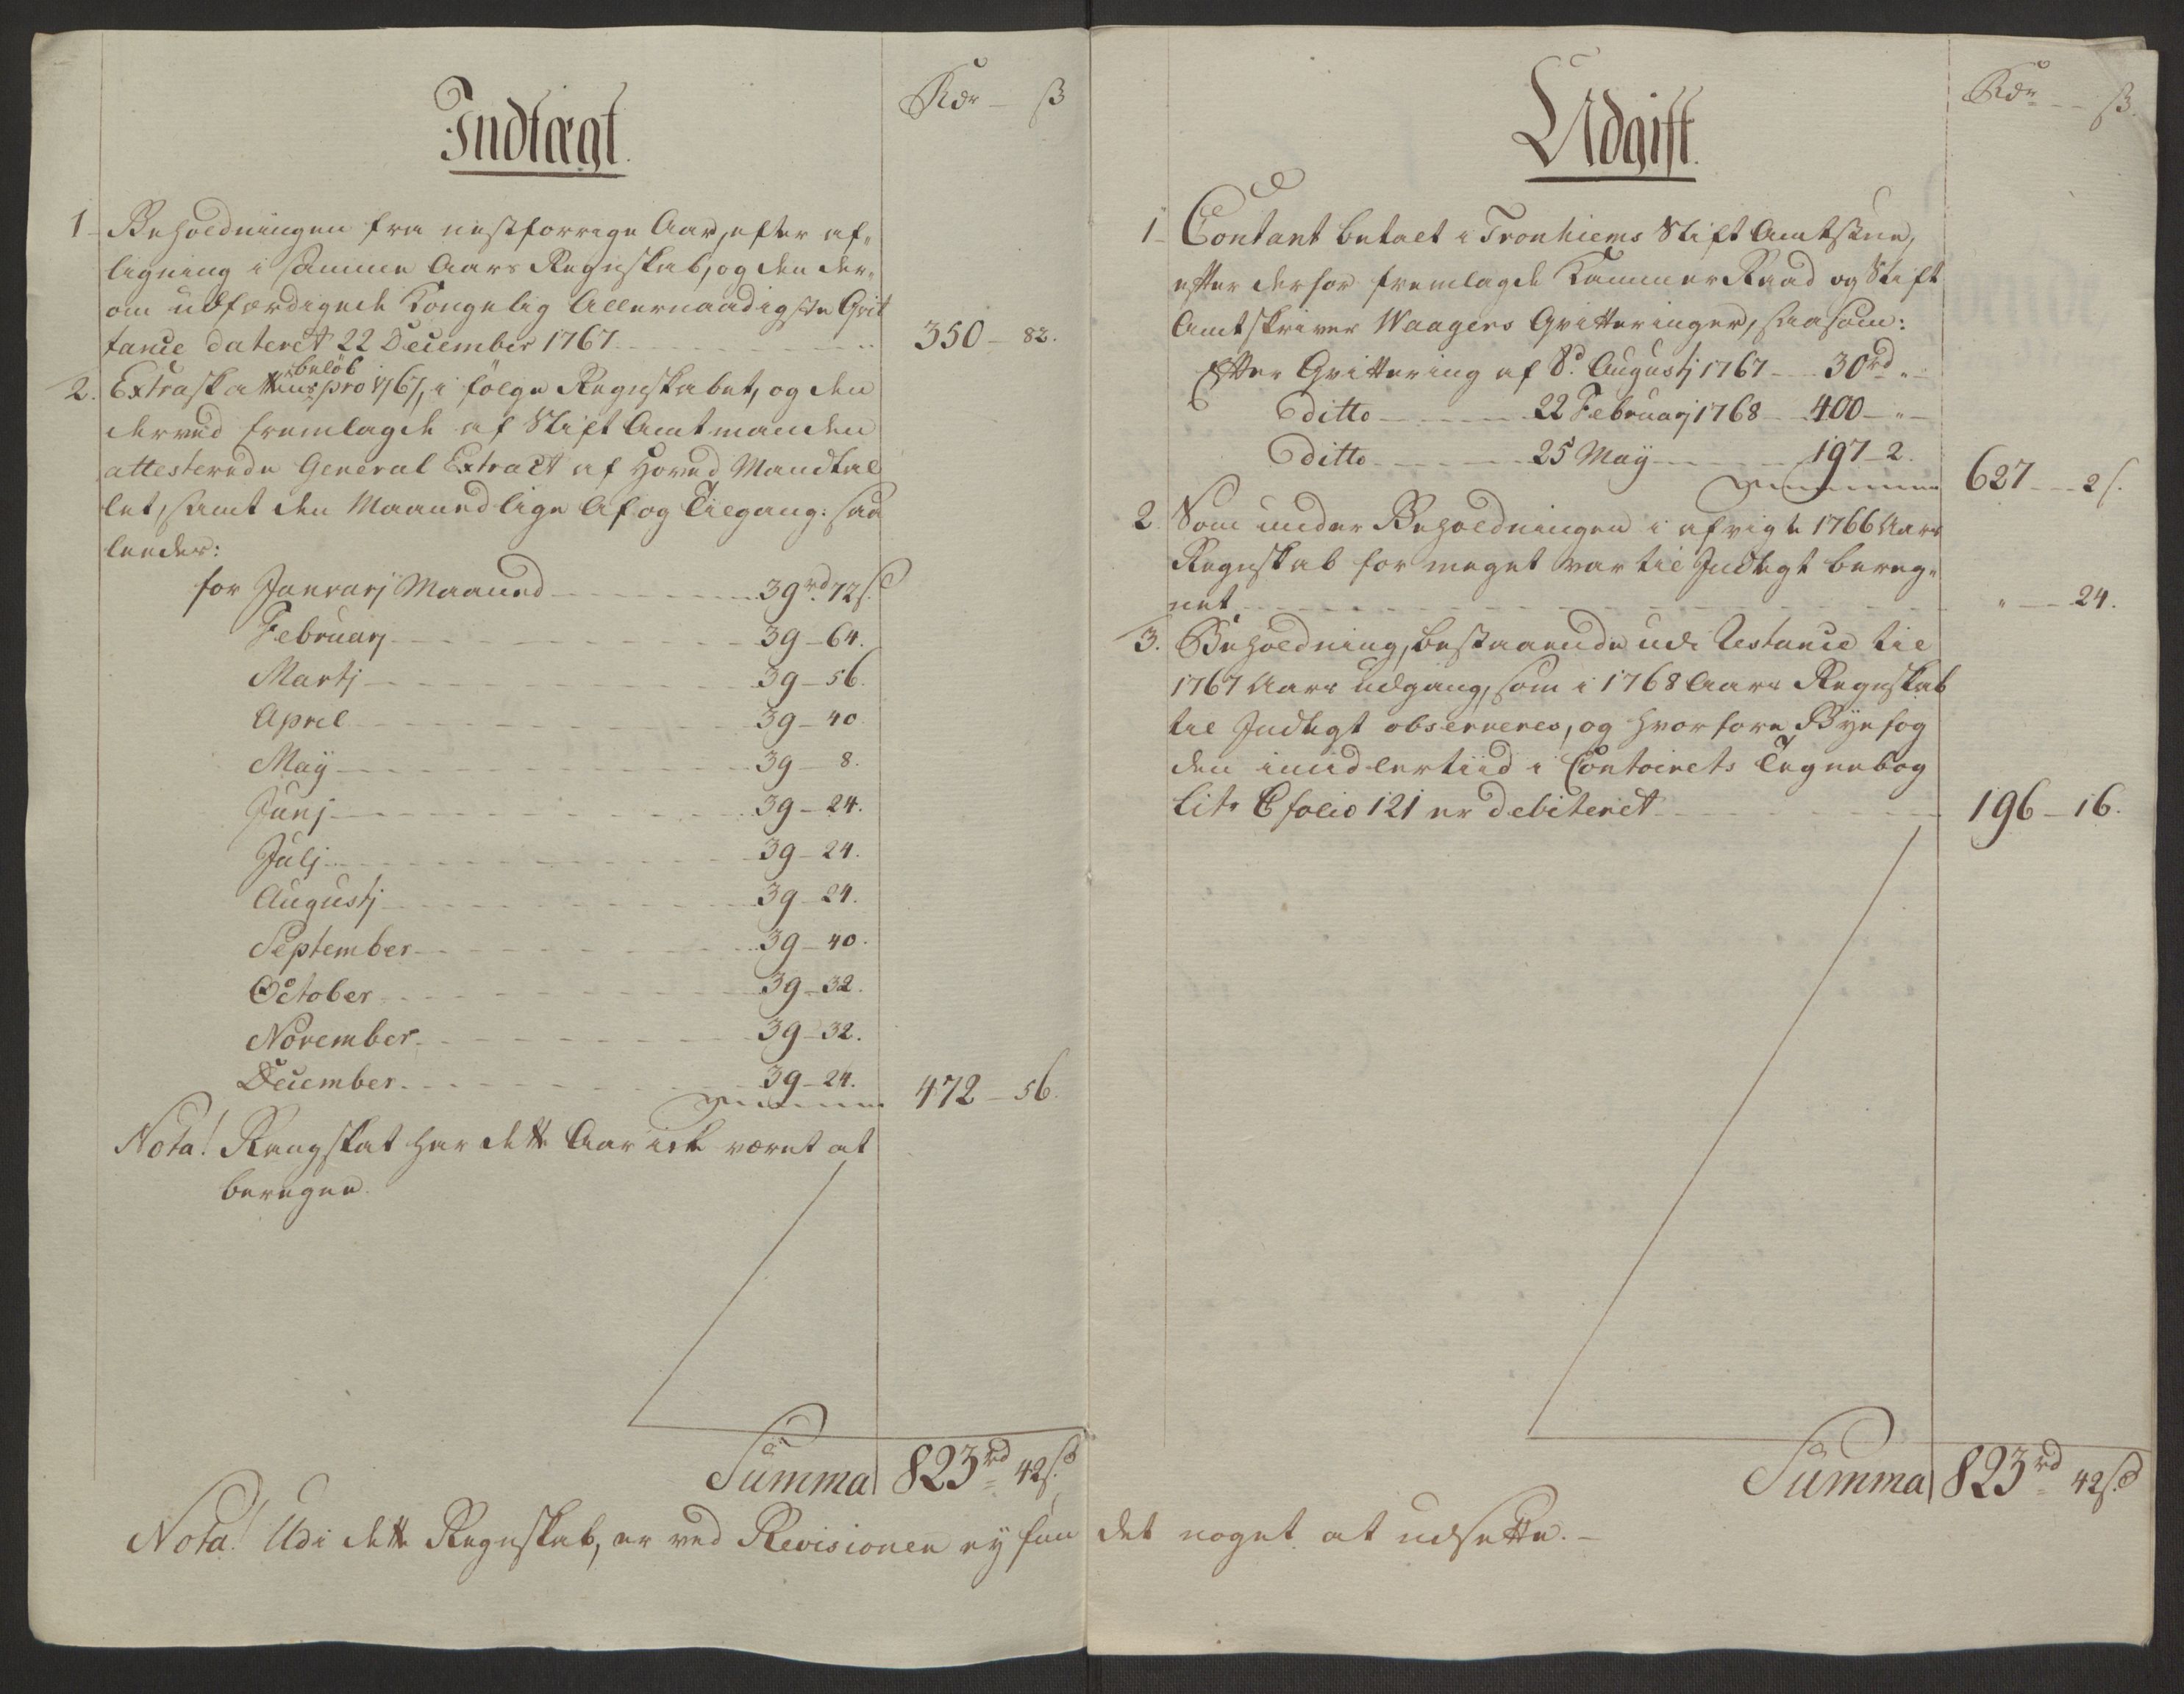 Indtægt.
Rdr - ß
1 - Beholdningen fra nestforrige Aar, efter af-
ligning i samme Aars Regnskab, og den der-
om udfærdigede Kongelig Allernaadigste Qvit
tance dateret 22 December 1767 - - - 350 - 82.
beløb
2. Extraskattens pro 1767, i følge Regnskabet, og den
derved fremlagde af Stift Amtmanden
attesterede General Extract af Hoved Mandtal
let, samt den Maanedlige Af og Tilgang: saa
leedes:
for Janvarj Maaned - - - 39rd 72s.
Februarj - - - 39 - 64.
Martj - - - 39 - 56.
April - - - 39 - 40
Maÿ - - - 39 - 8.
Junj - - - 39 - 24.
Julj - - - 39 - 24.
Augustj - - - 39 - 24.
September - - - 39 - 40.
October - - - 39 - 32.
November - - - 39 - 32.
December - - - 39 - 24. 472 - 56.
Nota! Rangskat har dette Aar icke været at
beregne.
Summa 823rd 42s.
Udgift.
Rdr - ß.
1 - Contant betalt i Tronhiems Stift Amtstue,
efter derfor fremlagde Kammer Raad og Stift
Amtskriver Waagers Qvitteringer, saasom:
Efter Qvittering af 8de Augustj 1767 - 30rd "-
Ditto - - - 22 Februarj 1768 - 400 - " -
Ditto - - - 25 Maÿ - - - 197 - 2. 627 - 2s.
2. Som under Beholdningen i afvigte 1766 Aars
Regnskab for meget var til Indtegt bereg-
net - - - " - 24.
3. Beholdning, bestaaende udi Restance til
1767 Aars udgang, som i 1768 Aars Regnskab
til Indtegt observeres, og hvorfore Byefog
den imidlertiid i Contoirets Tegnebog
Litr C folio 121 er debiteret - - - 196 - 16.
Summa 823rd 42s.
Nota! Udi dette Regnskab, er ved Revisionen ey fun det noget at udsette. -